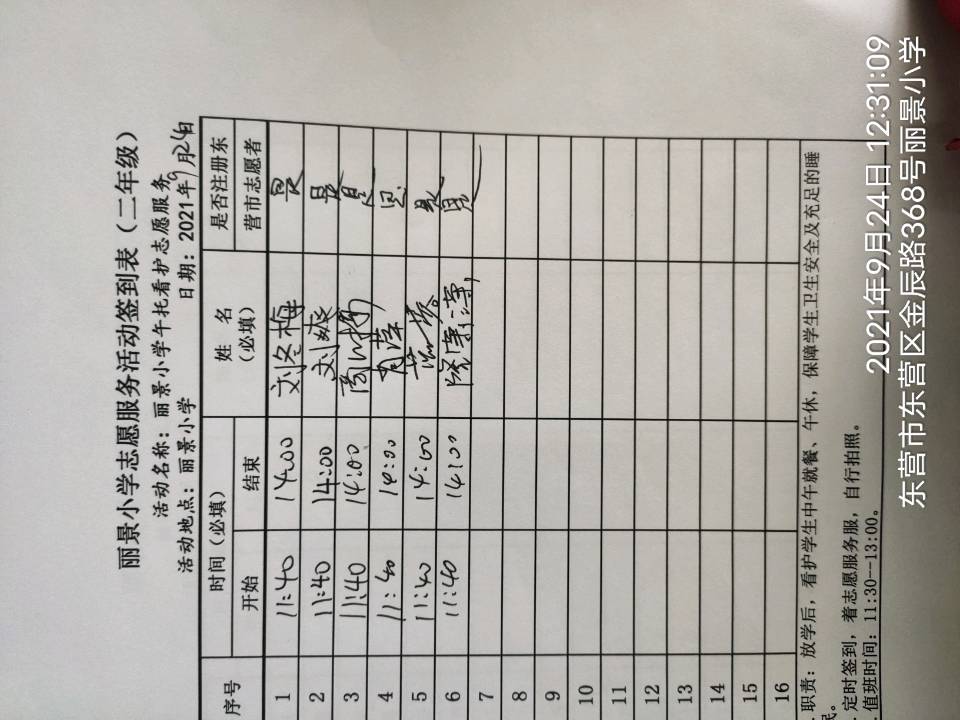 丽景小学志愿服务活动签到表（二年级）
活动名称：丽景小学午托看护志愿服务
活动地点：丽景小学 日期：2021年9月24日
序号 时间（必填） 姓名（必填） 是否注册东营市志愿者
开始 结束
1 11:40 14:00 刘冬梅 是
2 11:40 14:00 刘爽 是
3 11:40 14:00 是
4 11:40 14:00 是
5 11:40 14:00 是
6 11:40 14:00 是
7
8
9
10
11
12
13
14
15
16
职责：放学后，看护学生中午就餐、午休，保障学生卫生安全及充足的睡
眠。
定时签到，着志愿服务服，自行拍照。
值班时间：11:30--13:00。
2021年9月24日 12:31:09
东营市东营区金辰路368号丽景小学